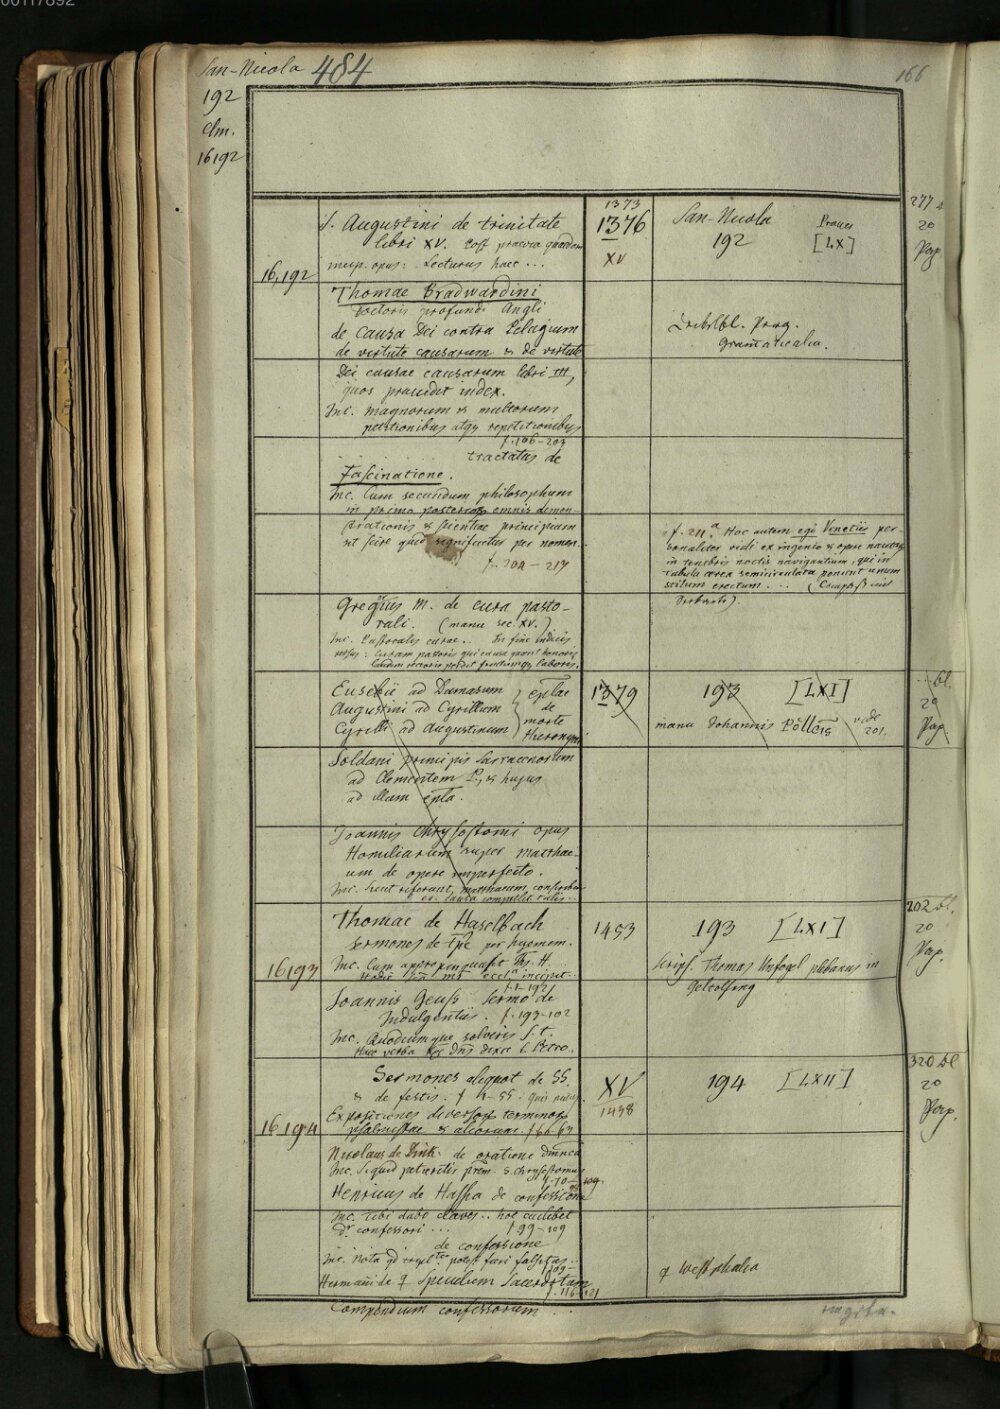 00117892
San-Nicola 484
166
192
Clm.
16192
S. Augustini de trinitate
libri XV.
inc. opus: Lecturus haec ...
1373
1376
XV
San-Nicola
192
[LX]
277
20
Pap.
16,192
Thomae Bradwardini
doctoris profundi Angli
de causa Dei contra Pelagium
de virtute causarum & de virtute
Dei causae causarum libri III,
quos praecedit index.
Inc. magnorum & multorum
petitionibus atque repetitionibus
f. 106-203
tractatus de
Fascinatione.
Inc. Cum secundum philosophum
in primo omnis demon-
strationis & scientiae principium
sit scire quid significetur per nomen.
f. 204-217
f. 211a Hoc autem ego Venetiis per-
sonaliter vidi ex ingenio & opere
in tenebris noctis navigantium, qui in
tabula aerea semicirculata ponunt unum
stilum erectum ...
Gregorius M. de cura pasto-
rali. (manu sec. XV.)
Inc. Pastoralis curae .. In fine indicis
versus: Curam pastoris qui causa gerit honoris
Eusebii ad Damasum
Augustini ad Cyrillum
Cyrilli ad Augustinum
eptlae
de
morte
Hieronymi
1379
193 [LXI]
manu Johannis
vide
201.
bl.
20
Pap.
Soldani principis Sarracenorum
ad Clementem P., & hujus
ad illum eptla.
Joannis Chrysostomi opus
Homiliarum super Matthae-
um de opere imperfecto.
Inc. Sicut referunt, Matthaeum conscribere
ev. causa compulit talis..
Thomae de Haselbach
sermones de tpe per hyemem.
Inc. Cum appropinquasset
f. 1-192
1453
193 [LXI]
scrips. Thomas plebanus in
202 bl.
20
Pap.
16193
Joannis Geuss Sermo de
Indulgentiis. f. 193-202
Inc. Quodcumque solveris s. t.
Haec verba dixit S. Petro.
Sermones aliquot de SS.
& de festis.
Expositiones diversorum terminorum
psalmistae & aliorum. f. 66-69
XV
1438
194 [LXII]
320 bl
20
Pap.
16194
Nicolaus de Dink. de oratione dominica
Inc. Si quid petieritis prem. S. Chrysostomus
Henricus de Hassia de confessione
Inc. Tibi dabo claves .. hoc cuilibet
confessori ... f. 99-109
de confessione
Inc. Nota
Hermani de q Speculum Sacerdotum
f. 116-121
q Westphalia
Compendium confessorum ..